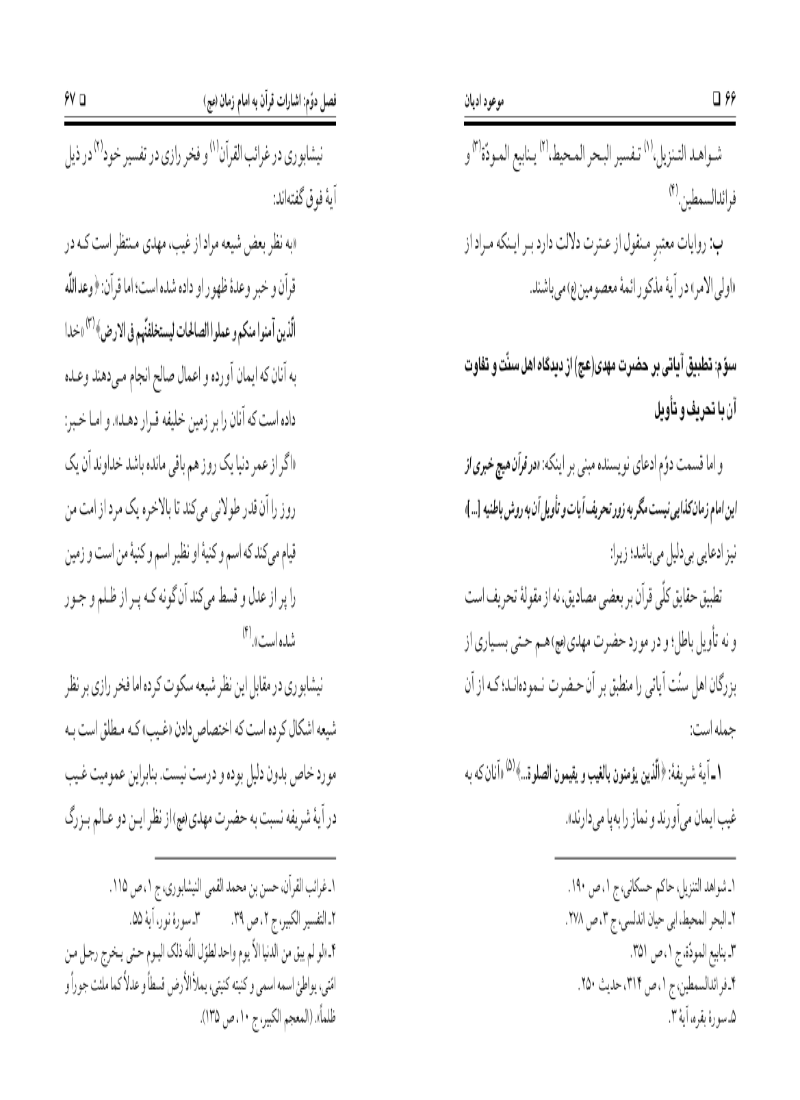 ۶۶ □ موعود ادیان
شواهد التنزیل،(۱) تفسیر البحر المحیط،(۲) ینابیع المودّة(۳) و
فرائدالسمطین.(۴)
ب: روایات معتبرِ منقول از عترت دلالت دارد بر اینکه مراد از
«اولی الامر» در آیۀ مذکور ائمۀ معصومین(ع) می‌باشند.
سوّم: تطبیق آیاتی بر حضرت مهدی(عج) از دیدگاه اهل سنّت و تفاوت
آن با تحریف و تأویل
و اما قسمت دوّم ادعای نویسنده مبنی بر اینکه: «در قرآن هیچ خبری از
این امام زمان کذایی نیست مگر به زور تحریف آیات و تأویل آن به روش باطنیه [...]»
نیز ادعایی بی‌دلیل می‌باشد؛ زیرا:
تطبیق حقایق کلّی قرآن بر بعضی مصادیق، نه از مقولۀ تحریف است
و نه تأویل باطل؛ و در مورد حضرت مهدی(عج) هم حتی بسیاری از
بزرگان اهل سنّت آیاتی را منطبق بر آن حضرت نموده‌اند؛ که از آن
جمله است:
۱ـ آیۀ شریفۀ: ﴿الّذین یؤمنون بالغیب و یقیمون الصلوة...﴾(۵) «آنان که به
غیب ایمان می‌آورند و نماز را به‌پا می‌دارند».
۱ـ شواهد التنزیل، حاکم حسکانی، ج ۱، ص ۱۹۰.
۲ـ البحر المحیط، ابی حیان اندلسی، ج ۳، ص ۲۷۸.
۳ـ ینابیع المودّة، ج ۱، ص ۳۵۱.
۴ـ فرائدالسمطین، ج ۱، ص ۳۱۴، حدیث ۲۵۰.
۵ـ سورۀ بقره، آیۀ ۳.
فصل دوّم: اشارات قرآن به امام زمان (عج) □ ۶۷
نیشابوری در غرائب القرآن(۱) و فخر رازی در تفسیر خود(۲) در ذیل
آیۀ فوق گفته‌اند:
«به نظر بعض شیعه مراد از غیب، مهدی منتظر است که در
قرآن و خبر وعدۀ ظهور او داده شده است؛ اما قرآن: ﴿وعد اللّه
الّذین آمنوا منکم و عملوا الصالحات لیستخلفنّهم فی الارض﴾(۳) «خدا
به آنان که ایمان آورده و اعمال صالح انجام می‌دهند وعده
داده است که آنان را بر زمین خلیفه قرار دهد». و اما خبر:
«اگر از عمر دنیا یک روز هم باقی مانده باشد خداوند آن یک
روز را آن قدر طولانی می‌کند تا بالاخره یک مرد از امت من
قیام می‌کند که اسم و کنیۀ او نظیر اسم و کنیۀ من است و زمین
را پر از عدل و قسط می‌کند آن گونه که پر از ظلم و جور
شده است».(۴)
نیشابوری در مقابل این نظر شیعه سکوت کرده اما فخر رازی بر نظر
شیعه اشکال کرده است که اختصاص‌دادن «غیب» که مطلق است به
مورد خاص بدون دلیل بوده و درست نیست. بنابراین عمومیت غیب
در آیۀ شریفه نسبت به حضرت مهدی(عج) از نظر این دو عالم بزرگ
۱ـ غرائب القرآن، حسن بن محمد القمی النیشابوری، ج ۱، ص ۱۱۵.
۲ـ التفسیر الکبیر، ج ۲، ص ۳۹. ۳ـ سورۀ نور، آیۀ ۵۵.
۴ـ «لو لم یبق من الدنیا الاّ یوم واحد لطوّل اللّه ذلک الیوم حتی یخرج رجل من
امّتی، یواطئ اسمه اسمی و کنیته کنیتی، یملأ الأرض قسطاً و عدلاً کما ملئت جوراً و
ظلماً». (المعجم الکبیر، ج ۱۰، ص ۱۳۵).